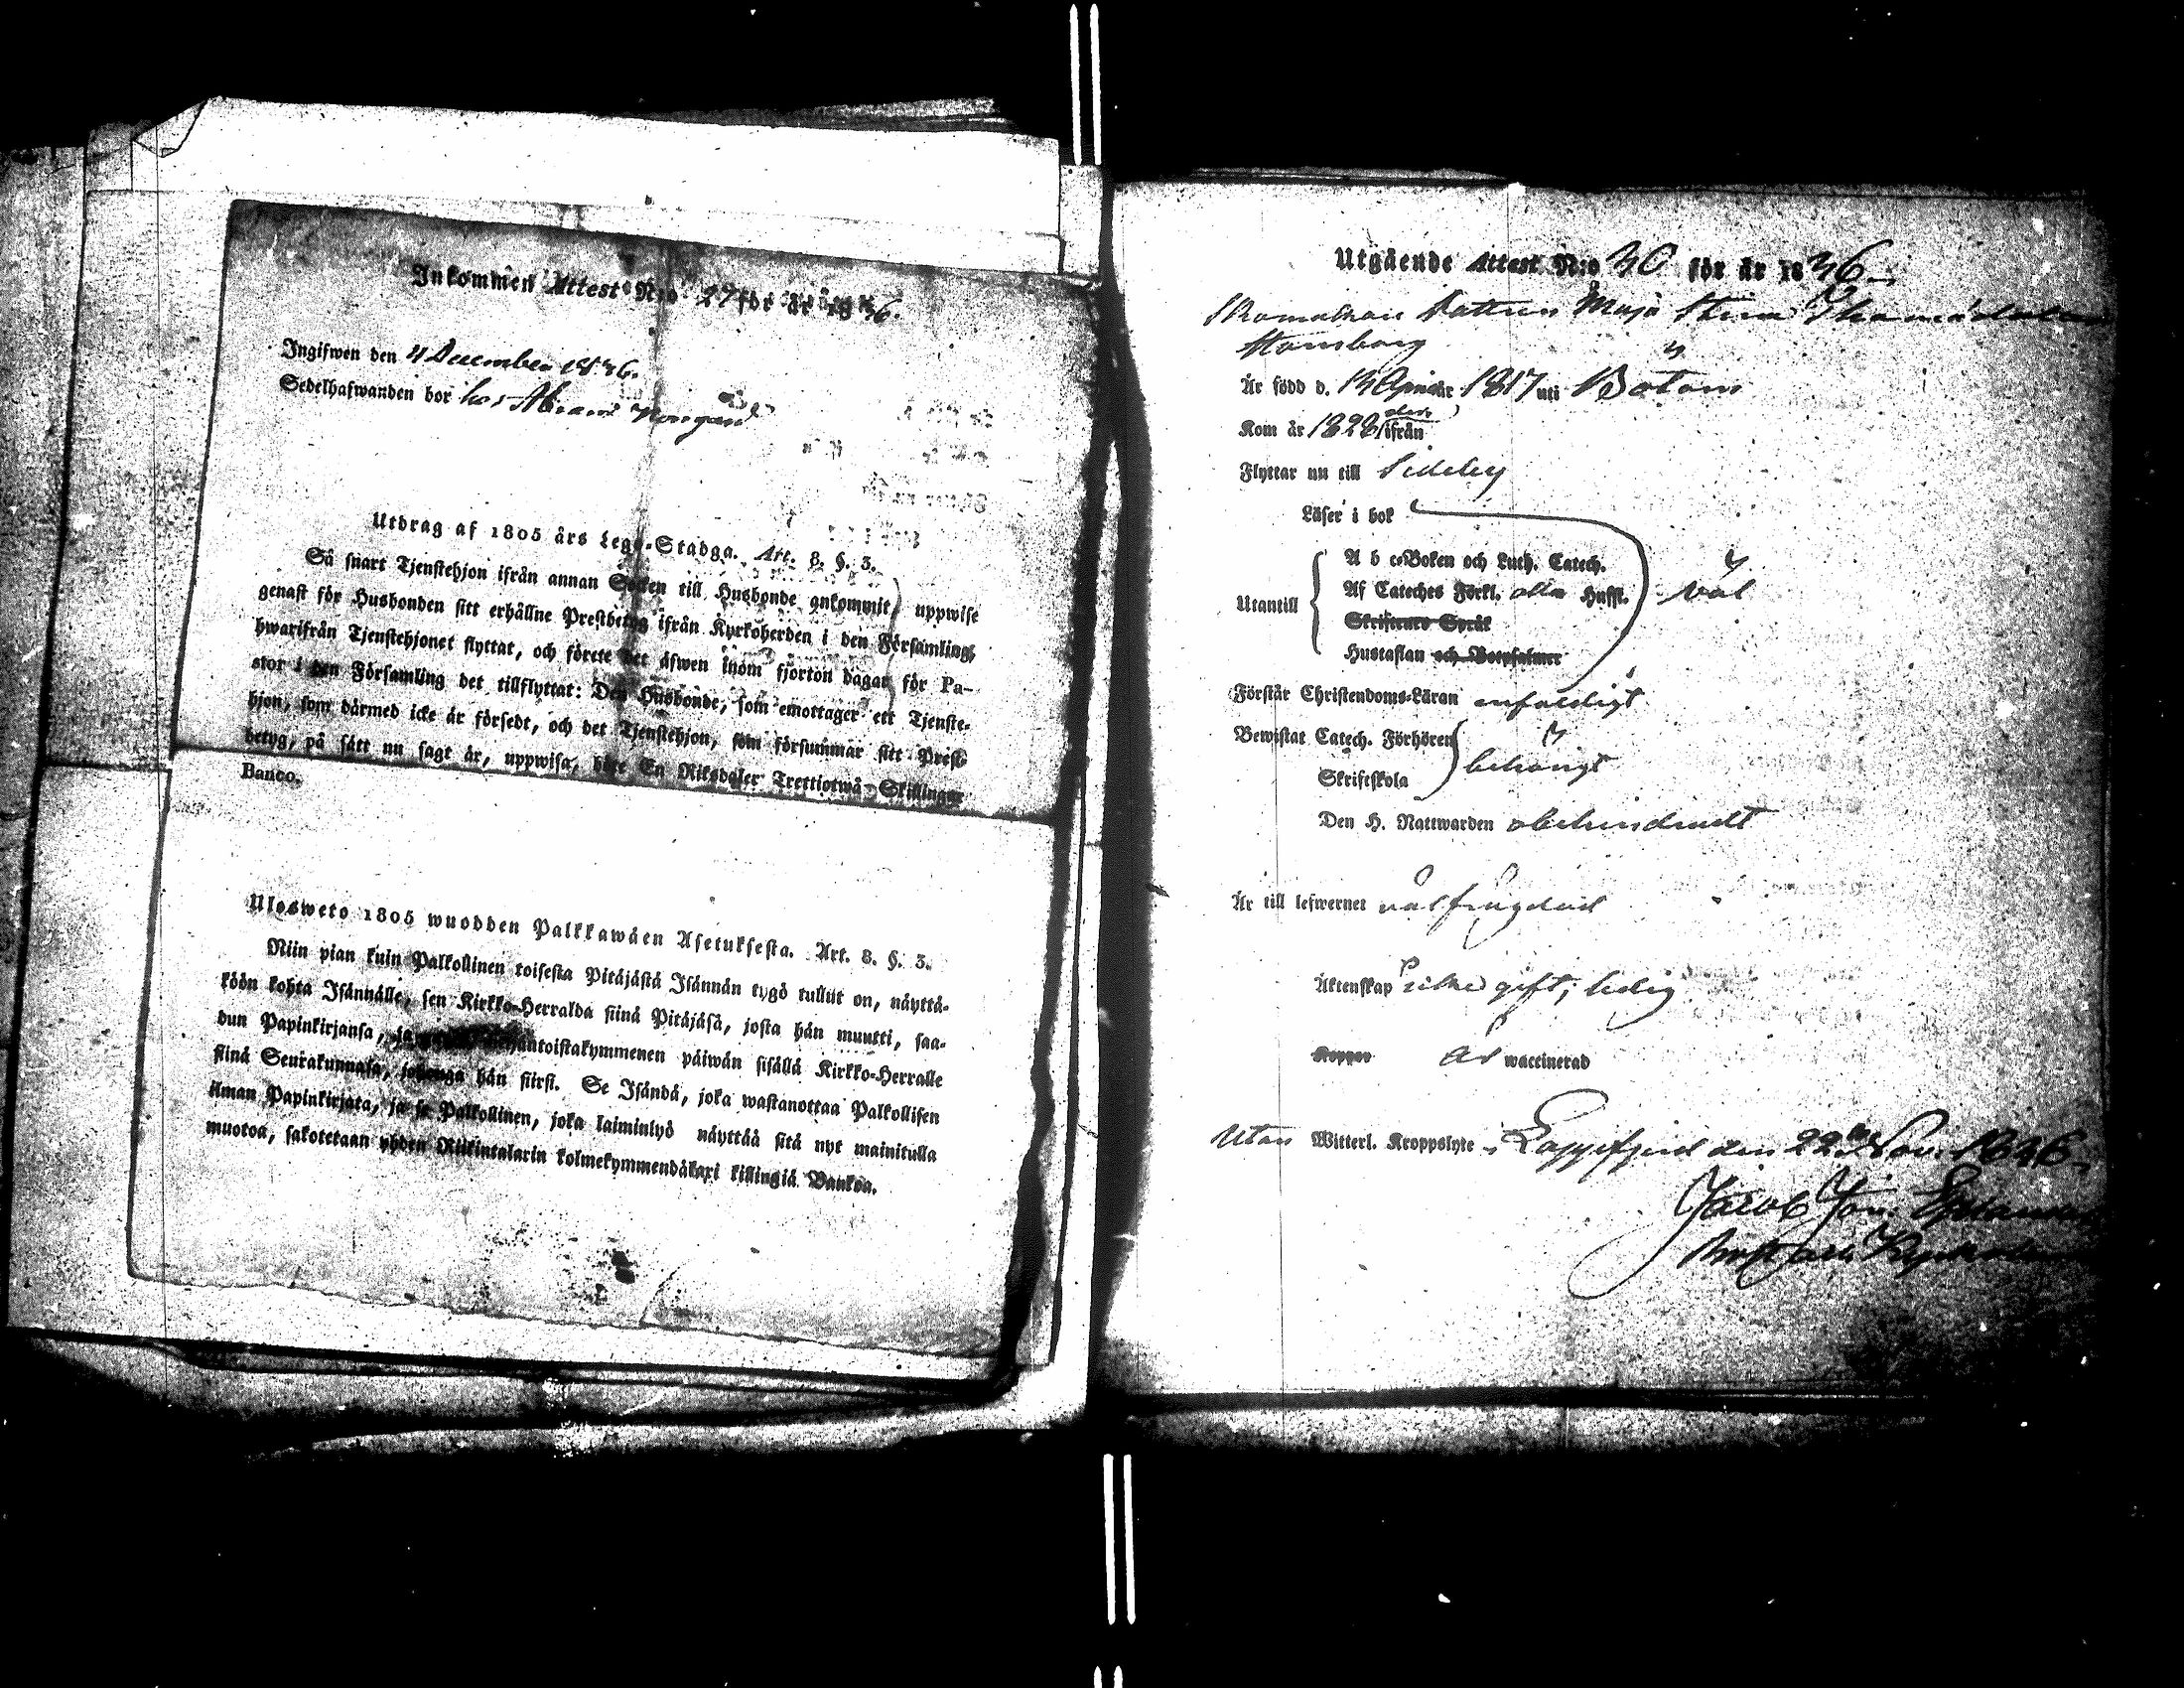 Inkommen Attest N:o 27 för år 1836.
Ingifwen den 4 December 1836.
Sedelhafwanden bor hos Abram
Utdrag af 1805 års Lego-Stadga. Art. 8. §. 3.
Så snart Tjenstehjon ifrån annan Socken till Husbonde ankommit, uppwise
genast för Husbonden sitt erhållne Prestbetyg ifrån Kyrkoherden i den Församling,
hwarifrån Tjenstehjonet flyttat, och förete det äfwen inom fjorton dagar för Pa-
stor i den Församling det tillflyttat: Den Husbonde, som emottager ett Tjenste-
hjon, som dårmed icke år försedt, och det Tjenstehjon, som försummar sitt Prest-
betyg, på sått nu sagt år, uppwisa, böte En Riksdaler Trettiotwå Skillingar
Banco.
Ulosweto 1805 wuodden Palkkawåen Asetuksesta. Art. 8. §. 3.
Niin pian kuin Palkollinen toisesta Pitåjåstå Isånnån tygö tullut on, nåyttå-
köön kohta Isånnålle, sen Kirkko-Herralda siinå Pitåjåså, josta hån muutti, saa-
dun Papinkirjansa, ja neljåntoistakymmenen påiwån sisållå Kirkko-Herralle
siinå Seurakunnasa, johonga hån siirsi. Se Isåndå, joka wastanottaa Palkollisen
ilman Papinkirjata, ja se Palkollinen, joka laiminlyö nåyttåå sitå nyt mainitulla
muotoa, sakotetaan yhden Riikintalarin kolmekymmendåkaxi killingiå Bankoa.
Utgående Attest N:o 30 för år 1836
Skomakare Dottren Maja Stina Thomasdotter
Stomsberg
Är född d. 13 April år 1817 uti Bötom
Kom år 1828 ders ifrån
Flyttar nu till Sideby
Läser i bok
Utantill
A b c-Boken och Luth. Catech.
Af Cateches Förkl. alla Hufst. väl
Skriftenes Språk
Hustaflan och Botpsalmer
Förstår Christendoms-Läran enfaldigt
Bewistat Catech. Förhören
Skriftskola behörigt
Den H. Nattwarden obehindradt
Är till lefwernet välfrägdad
Äktenskap icke gift, ledig
Koppor är waccinerad
Utan Witterl. Kroppslyte. Lappfjerd den 22 Nov. 1836
Jacob Jon.